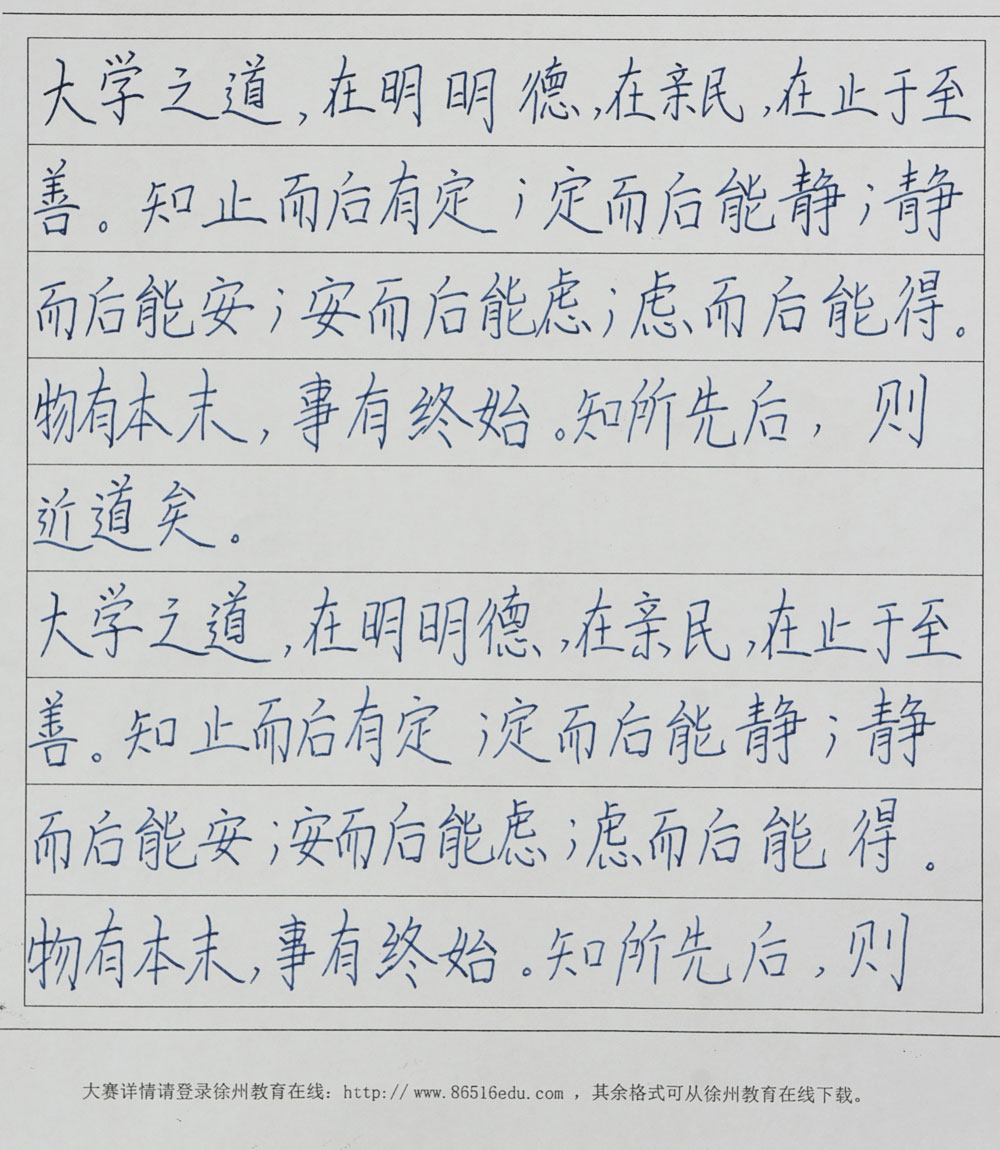 大学之道,在明明德,在亲民,在止于至
善。知止而后有定;定而后能静;静
而后能安;安而后能虑;虑而后能得。
物有本末,事有终始。知所先后,则
近道矣。
大学之道,在明明德,在亲民,在止于至
善。知止而后有定;定而后能静;静
而后能安;安而后能虑;虑而后能得。
物有本末,事有终始。知所先后,则
大赛详情请登录徐州教育在线:http://www.86516edu.com,其余格式可从徐州教育在线下载。